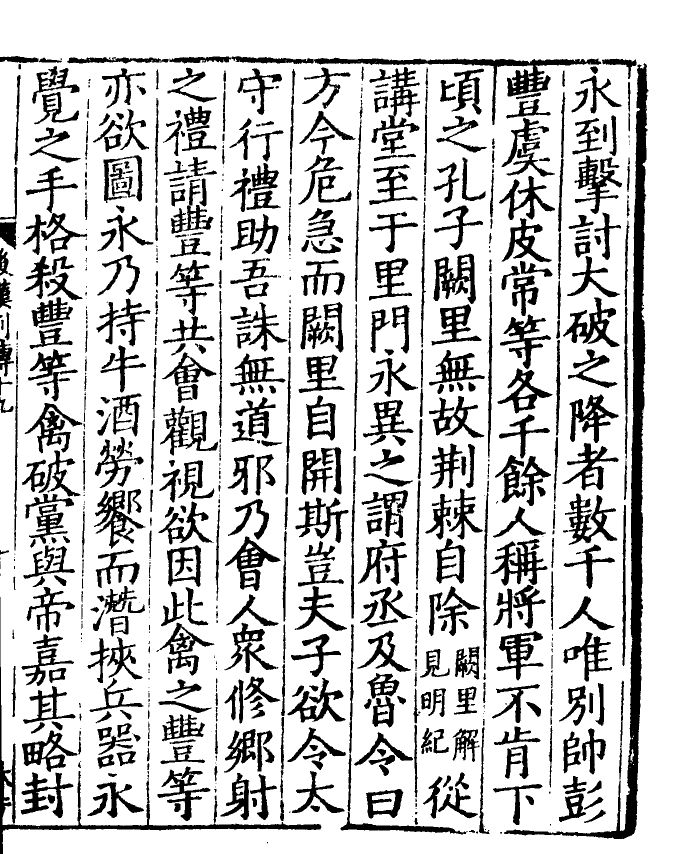 永到擊討大破之降者數千人唯別帥彭
豐虞休皮常等各千餘人稱將軍不肯下
頃之孔子闕里無故荆棘自除闕里解見明紀從
講堂至于里門永異之謂府丞及魯令曰
方今危急而闕里自開斯豈夫子欲令太
守行禮助吾誅無道邪乃會人衆修鄉射
之禮請豐等共會觀視欲因此禽之豐等
亦欲圖永乃持牛酒勞饗而潛挾兵器永
覺之手格殺豐等禽破黨與帝嘉其略封
後漢列傳十九